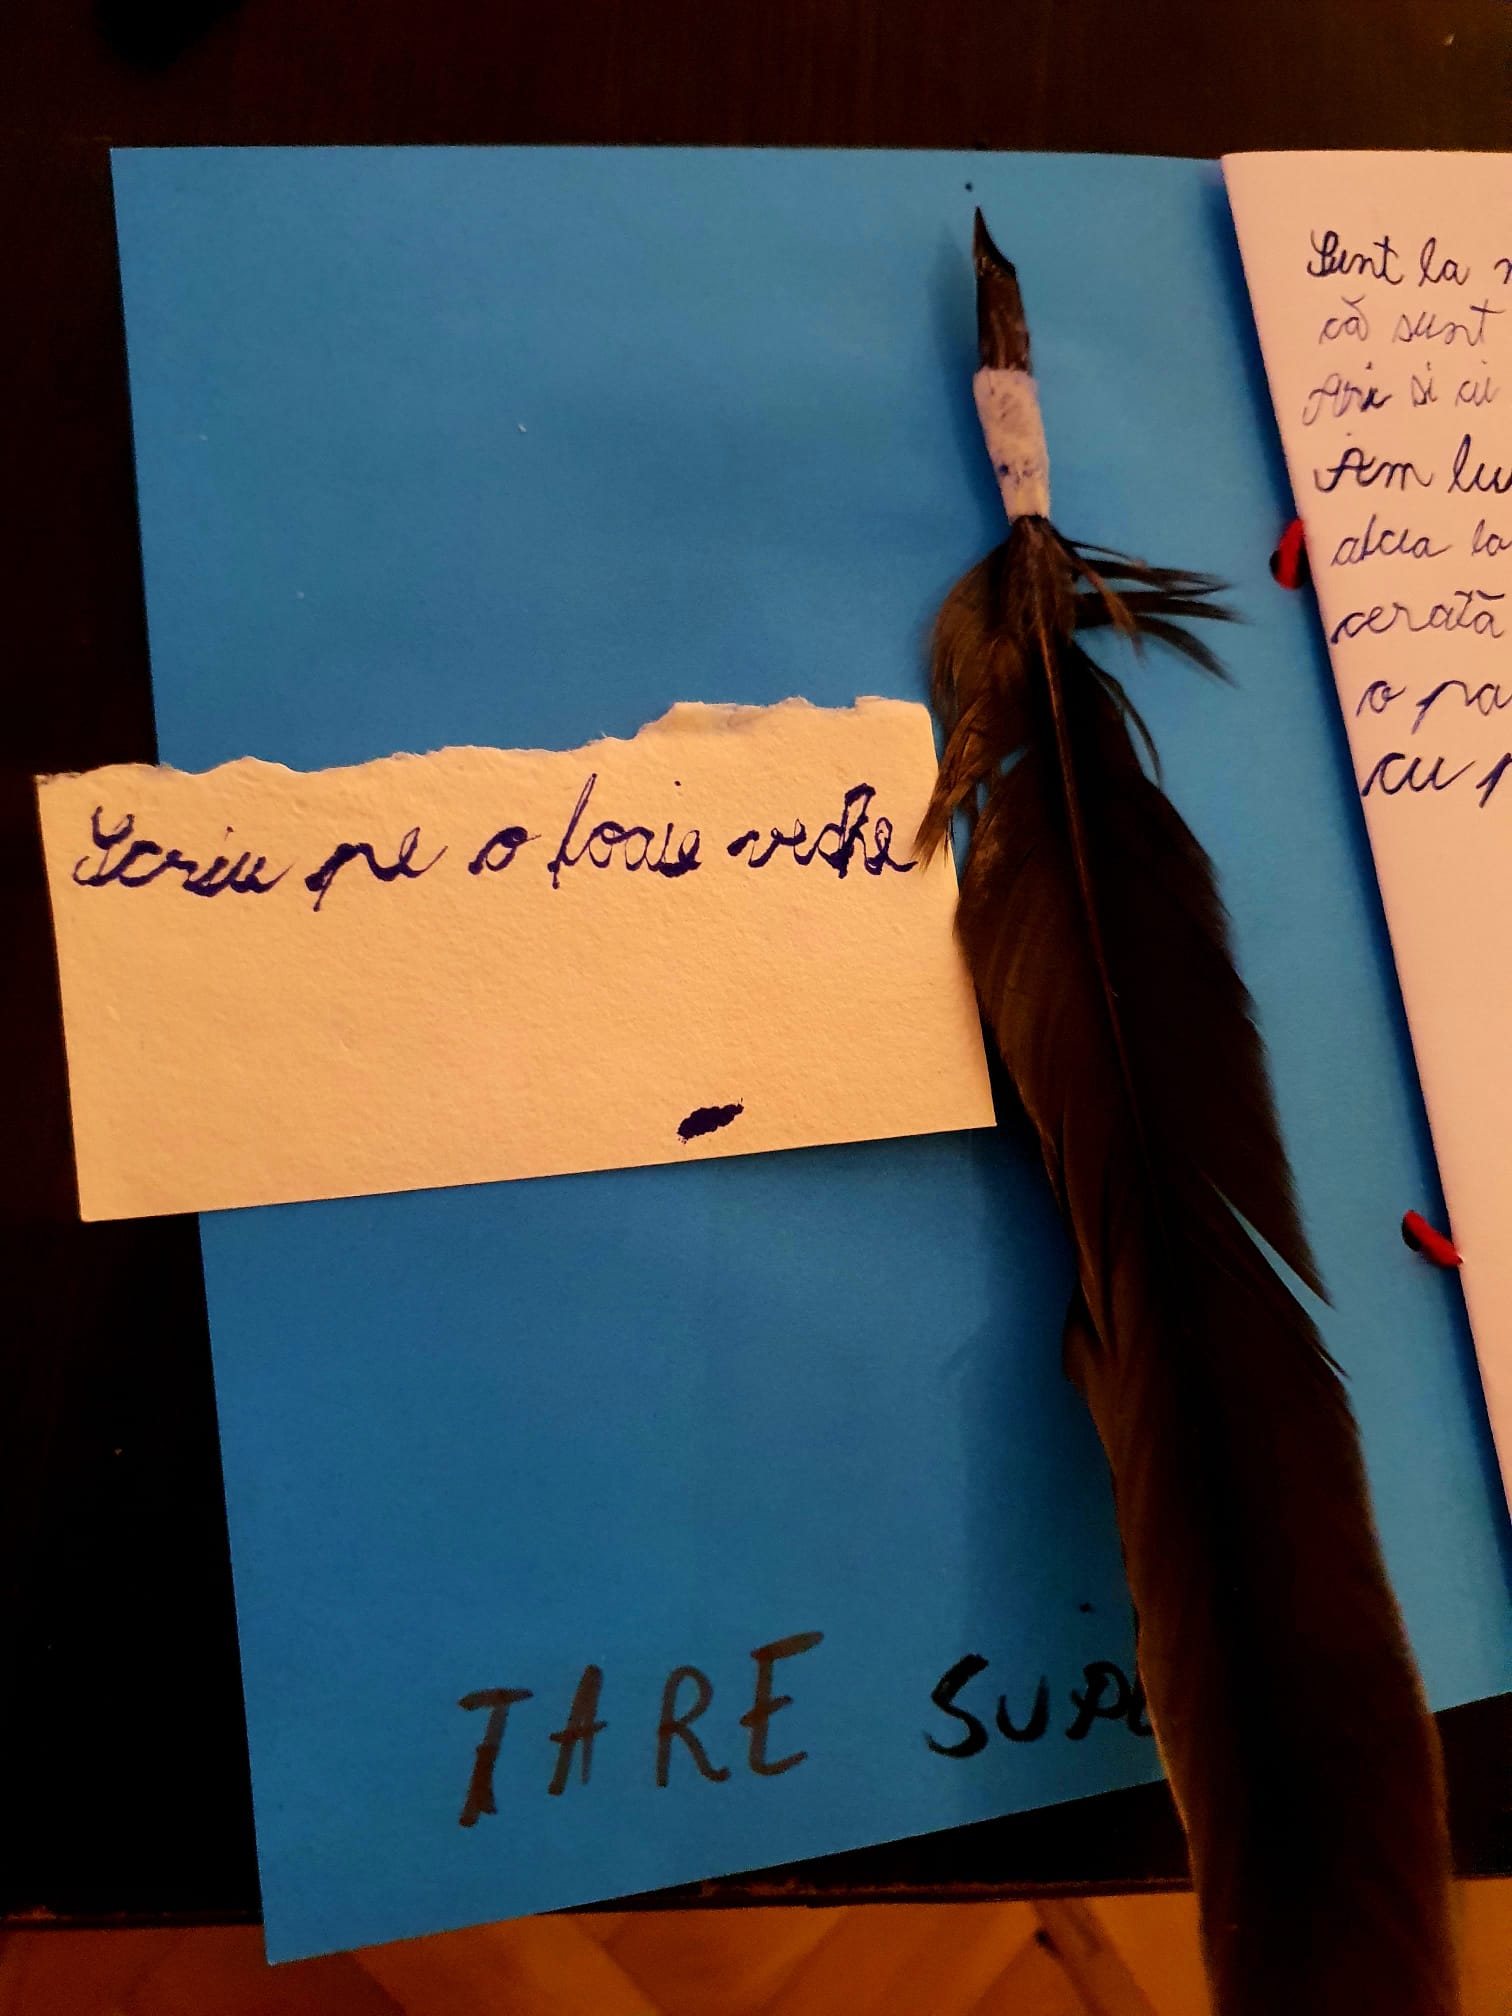 Scriu pe o foaie veche
TARE SUPE
Sunt la
că sunt
Ari si cu
Am lu
aicea la
cerată
o pa
cu p